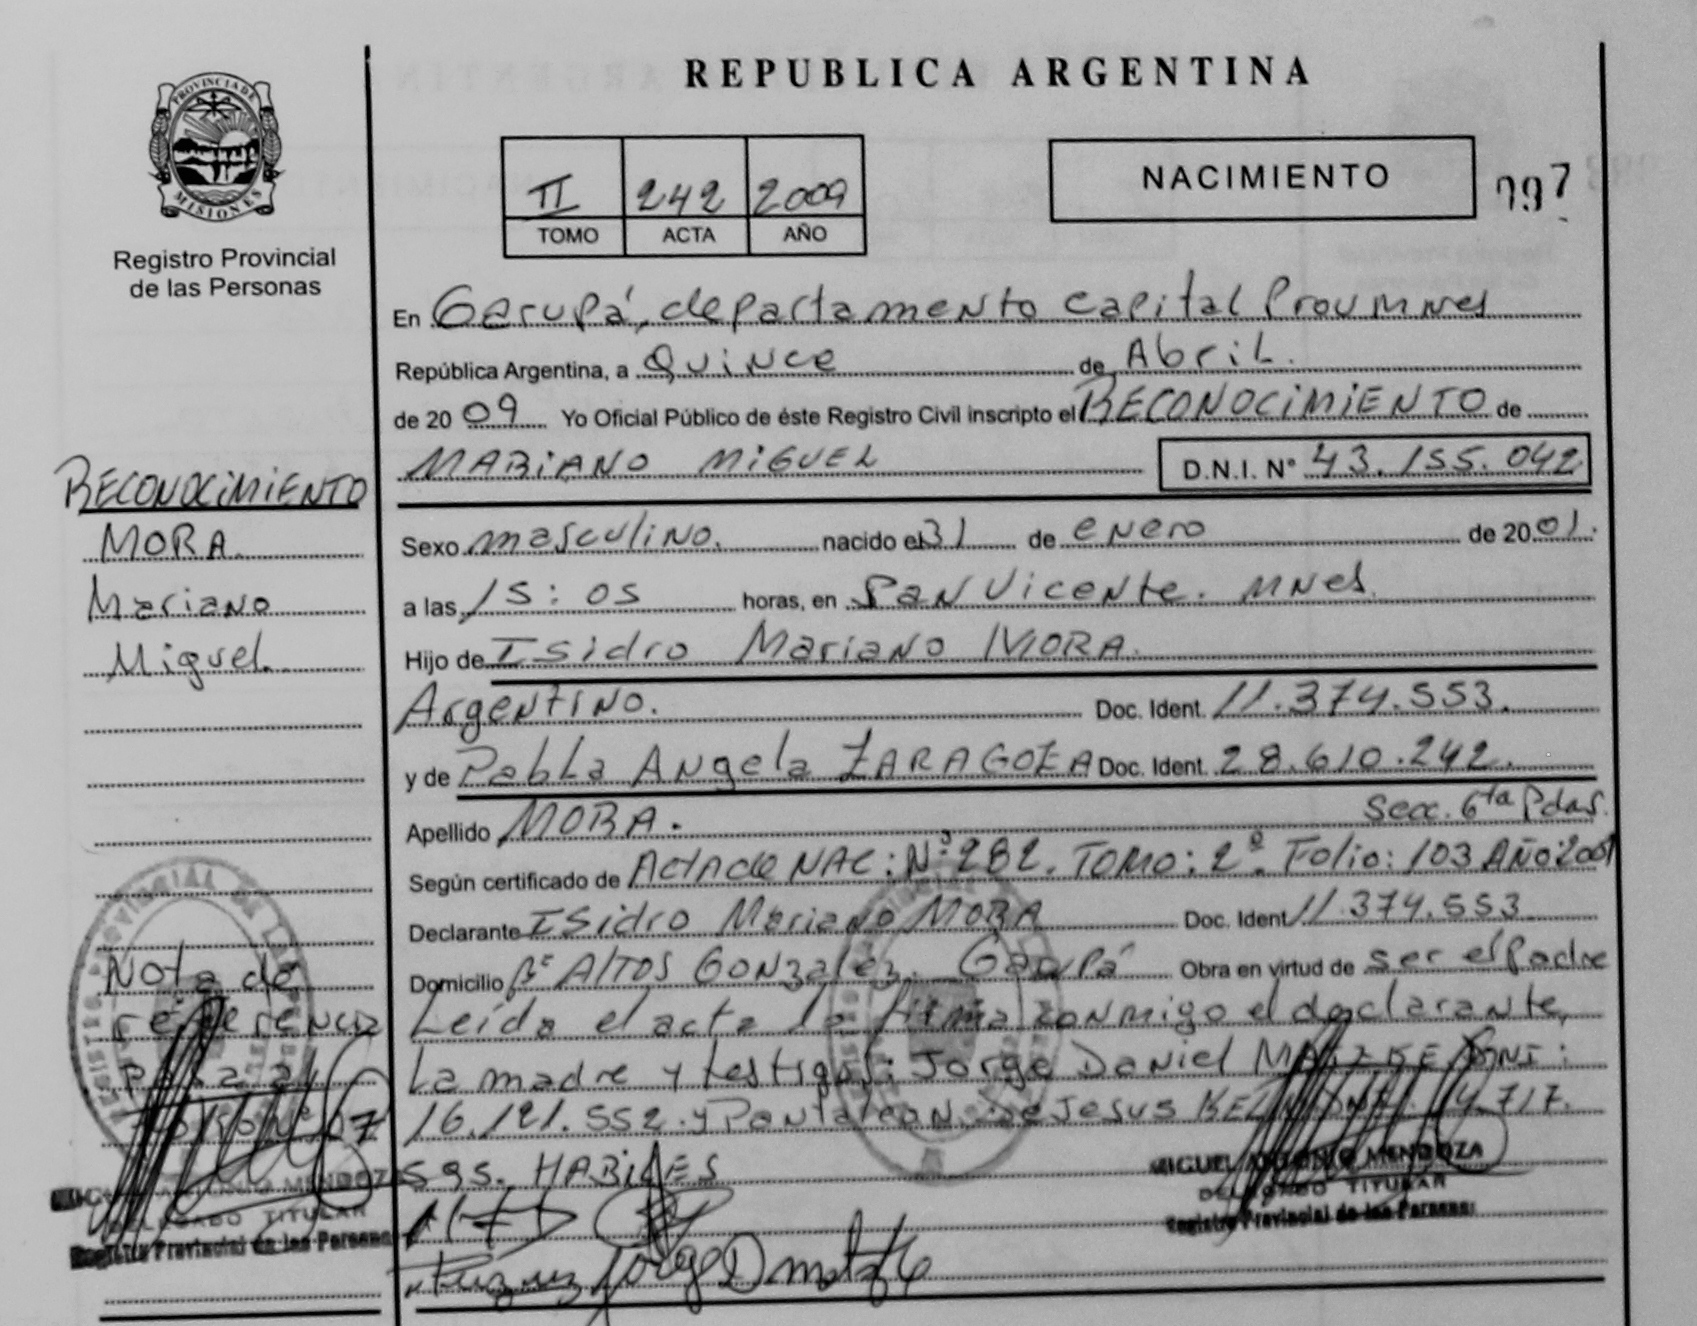 REPUBLICA ARGENTINA
PROVINCIA DE
MISIONES
Registro Provincial
de las Personas
II 242 2009
TOMO ACTA AÑO
NACIMIENTO
En Garupá, departamento Capital Prov Mnes
República Argentina, a Quince de Abril.
de 2009 Yo Oficial Público de éste Registro Civil inscripto el RECONOCIMIENTO de
MARIANO MIGUEL D.N.I. N° 43.155.042
RECONOCIMIENTO
MORA
Mariano
Miguel
Sexo masculino. nacido el 31 de enero de 2001.
a las 15:05 horas, en San Vicente. Mnes.
Hijo de Isidro Mariano MORA.
Argentino. Doc. Ident. 11.374.553.
y de Pabla Angela ZARAGOZA Doc. Ident. 28.610.242.
Apellido MORA. Secc. 6ta Pdas.
Según certificado de Acta de NAC: N° 282. TOMO: 2º. Folio: 103 AÑO: 2001
Declarante Isidro Mariano MORA Doc. Ident 11.374.553
Domicilio Bº Altos Gonzalez. Garupá Obra en virtud de ser el Padre
Leída el acta la firma conmigo el declarante,
La madre y testigos: Jorge Daniel
16.121.552. y Pantaleon de Jesus 14.717.
595. HABILES
Nota de
referencia
MIGUEL ANTONIO MENDOZA
DELEGADO TITULAR
Registro Provincial de las Personas
MIGUEL ANTONIO MENDOZA
DELEGADO TITULAR
Registro Provincial de las Personas